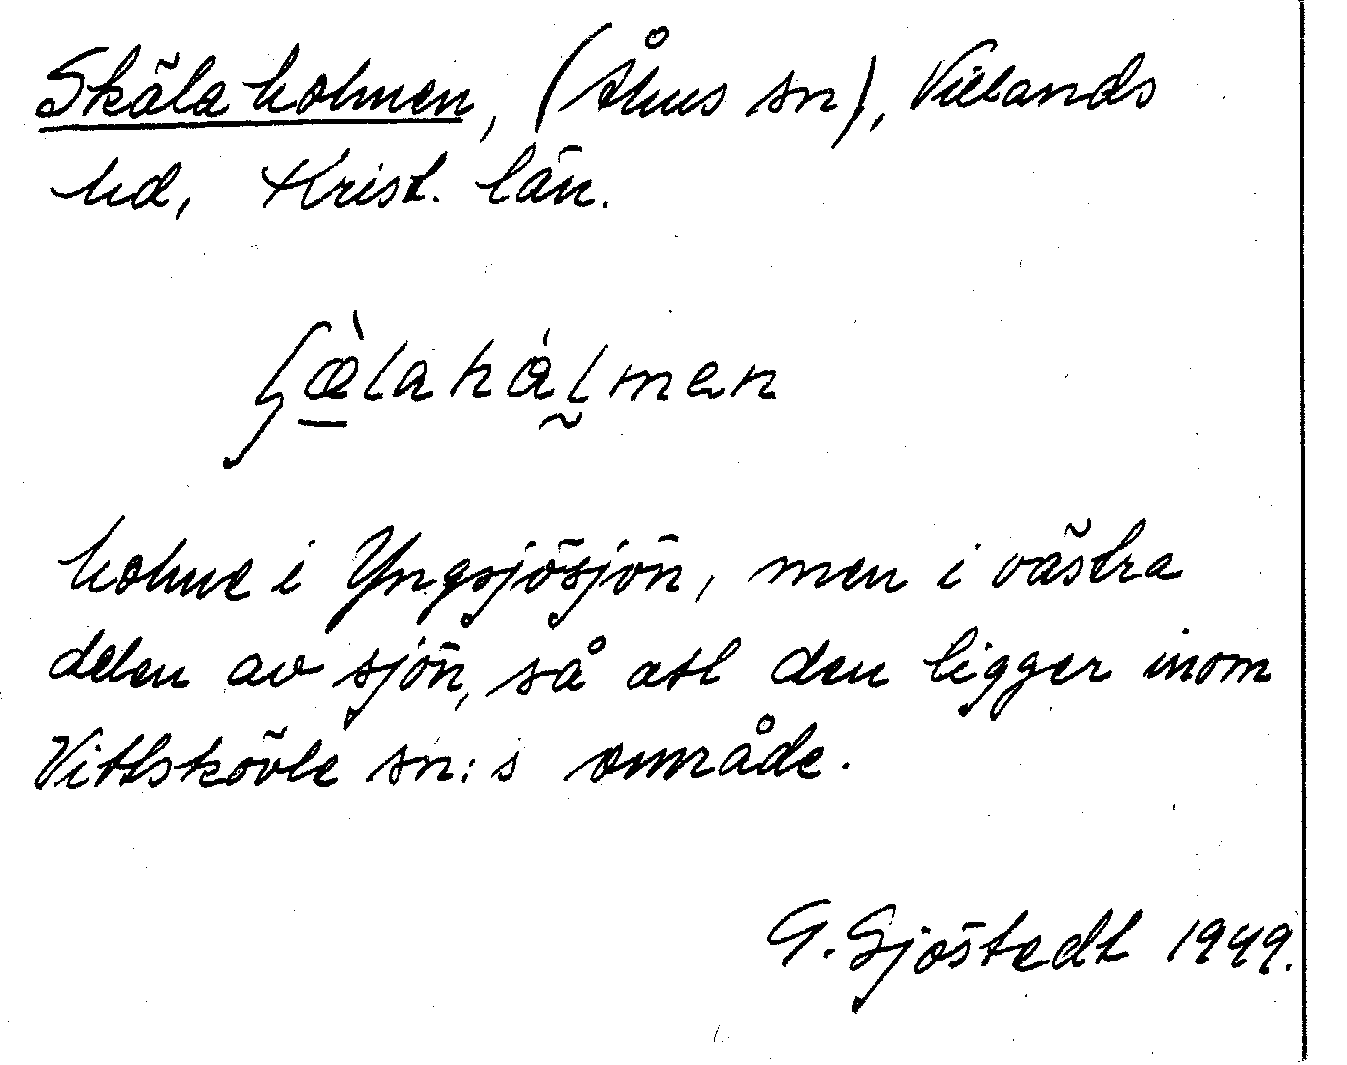 Skälaholmen, (Åhus sn), Villands
hd, Krist. län.
ʃæ̠̀lahål̰men
holme i Yngsjösjön, men i västra
delen av sjön, så att den ligger inom
Vittskövle sn:s område.
G. Sjöstedt 1949.